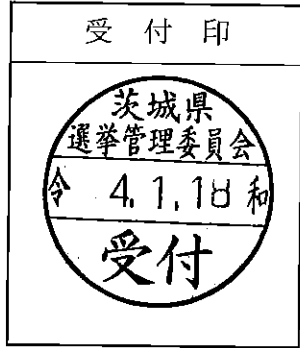 受付印
茨城県
選挙管理委員会
令 4.1.18 和
受付